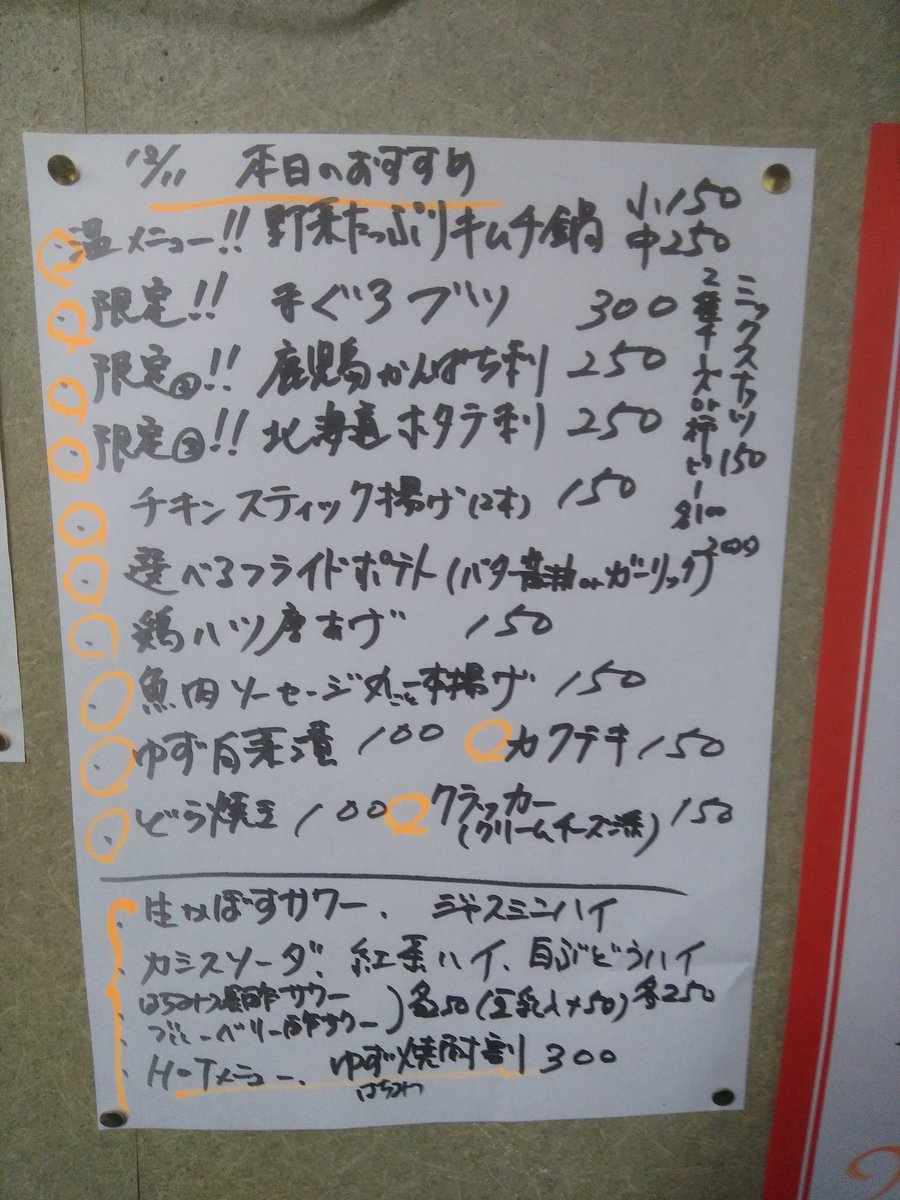 12/11 本日のおすすめ
温メニュー!! 野菜たっぷりキムチ鍋 小150 中250
限定!! まぐろブツ 300
限定②!! 鹿児島かんぱち刺 250
限定③!! 北海道ホタテ刺 250
ミックスナッツ 150
2種チーズor柿ピー 各100
チキンスティック揚げ(2本) 150
選べるフライドポテト(バター醤油orガーリック) 200
鶏ハツ唐あげ 150
魚肉ソーセージ丸ごと一本揚げ 150
ゆず白菜漬 100 カクテキ 150
どら焼き 100 クラッカー(クリームチーズ添) 150
生かぼすサワー、ジャスミンハイ
カシスソーダ、紅茶ハイ、白ぶどうハイ
はちみつ黒酢サワー
ブルーベリー酢サワー 各250(豆乳入+50) 各250
HOTメニュー、ゆず焼酎割 300
はちみつ